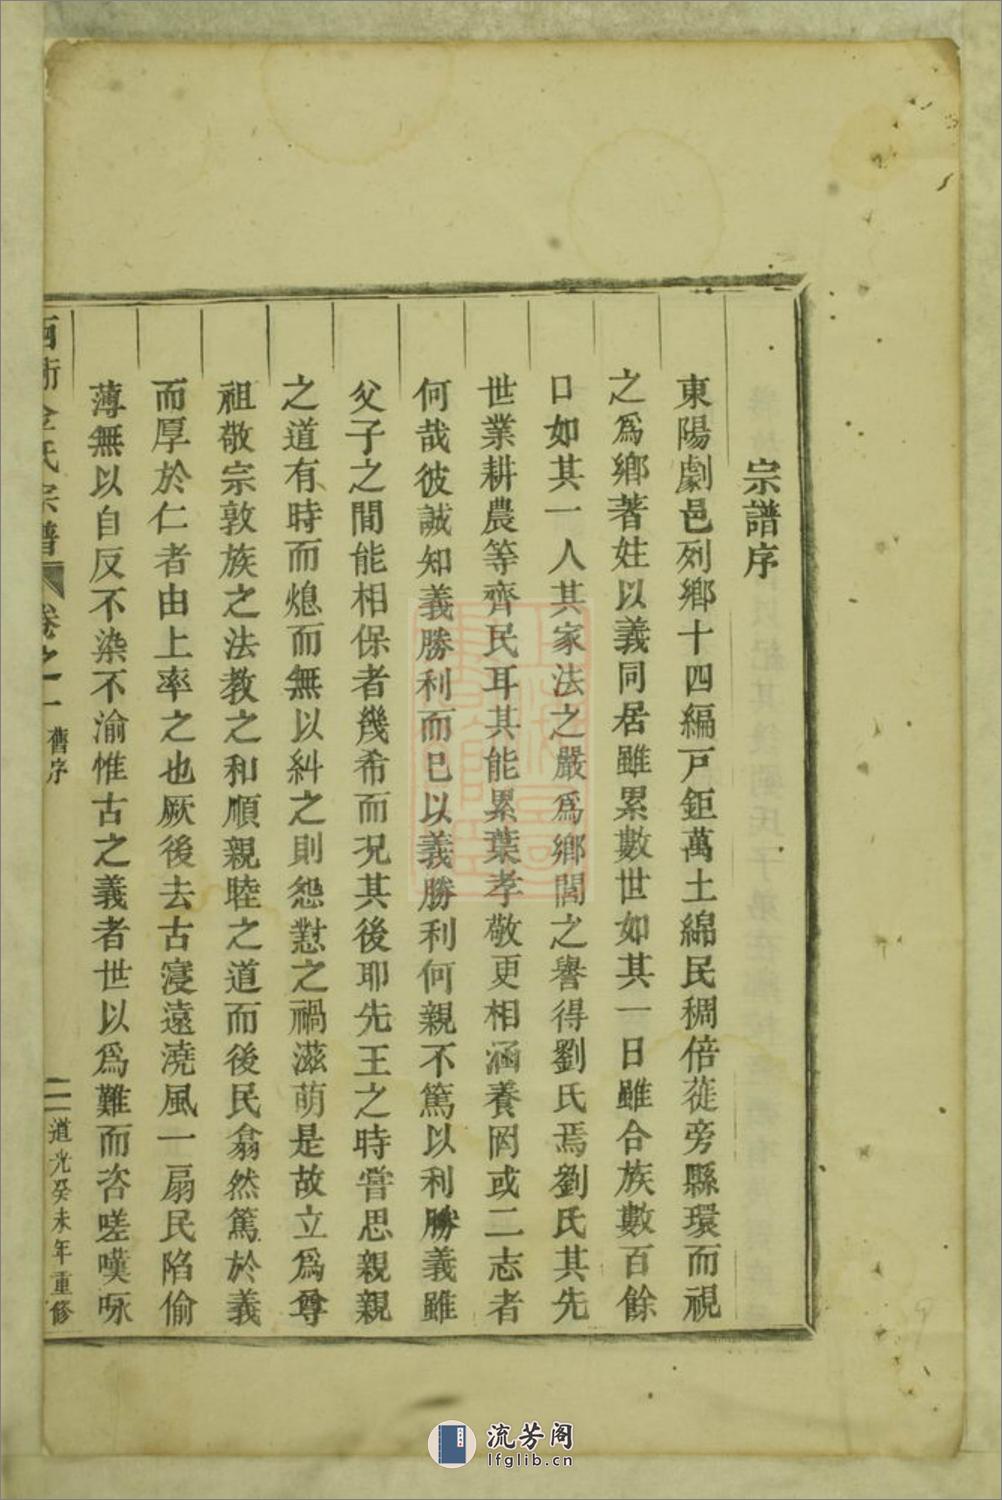 宗譜序
東陽劇邑列鄉十四編戸鉅萬土綿民稠倍蓰旁縣環而視
之爲鄉著姓以義同居雖累數世如其一日雖合族數百餘
口如其一人其家法之嚴爲鄉閭之譽得劉氏焉劉氏其先
世業耕農等齊民耳其能累葉孝敬更相涵養罔或二志者
何哉彼誠知義勝利而已以義勝利何親不篤以利勝義雖
父子之間能相保者幾希而况其後耶先王之時嘗思親親
之道有時而熄而無以糾之則怨懟之禍滋萌是故立爲尊
祖敬宗敦族之法教之和順親睦之道而後民翕然篤於義
而厚於仁者由上率之也厥後去古寖遠澆風一扇民陷偷
薄無以自反不染不渝惟古之義者世以爲難而咨嗟嘆咏
氏宗譜 卷之一 舊序 二 道光癸未年重修
流芳阁
lfglib.cn